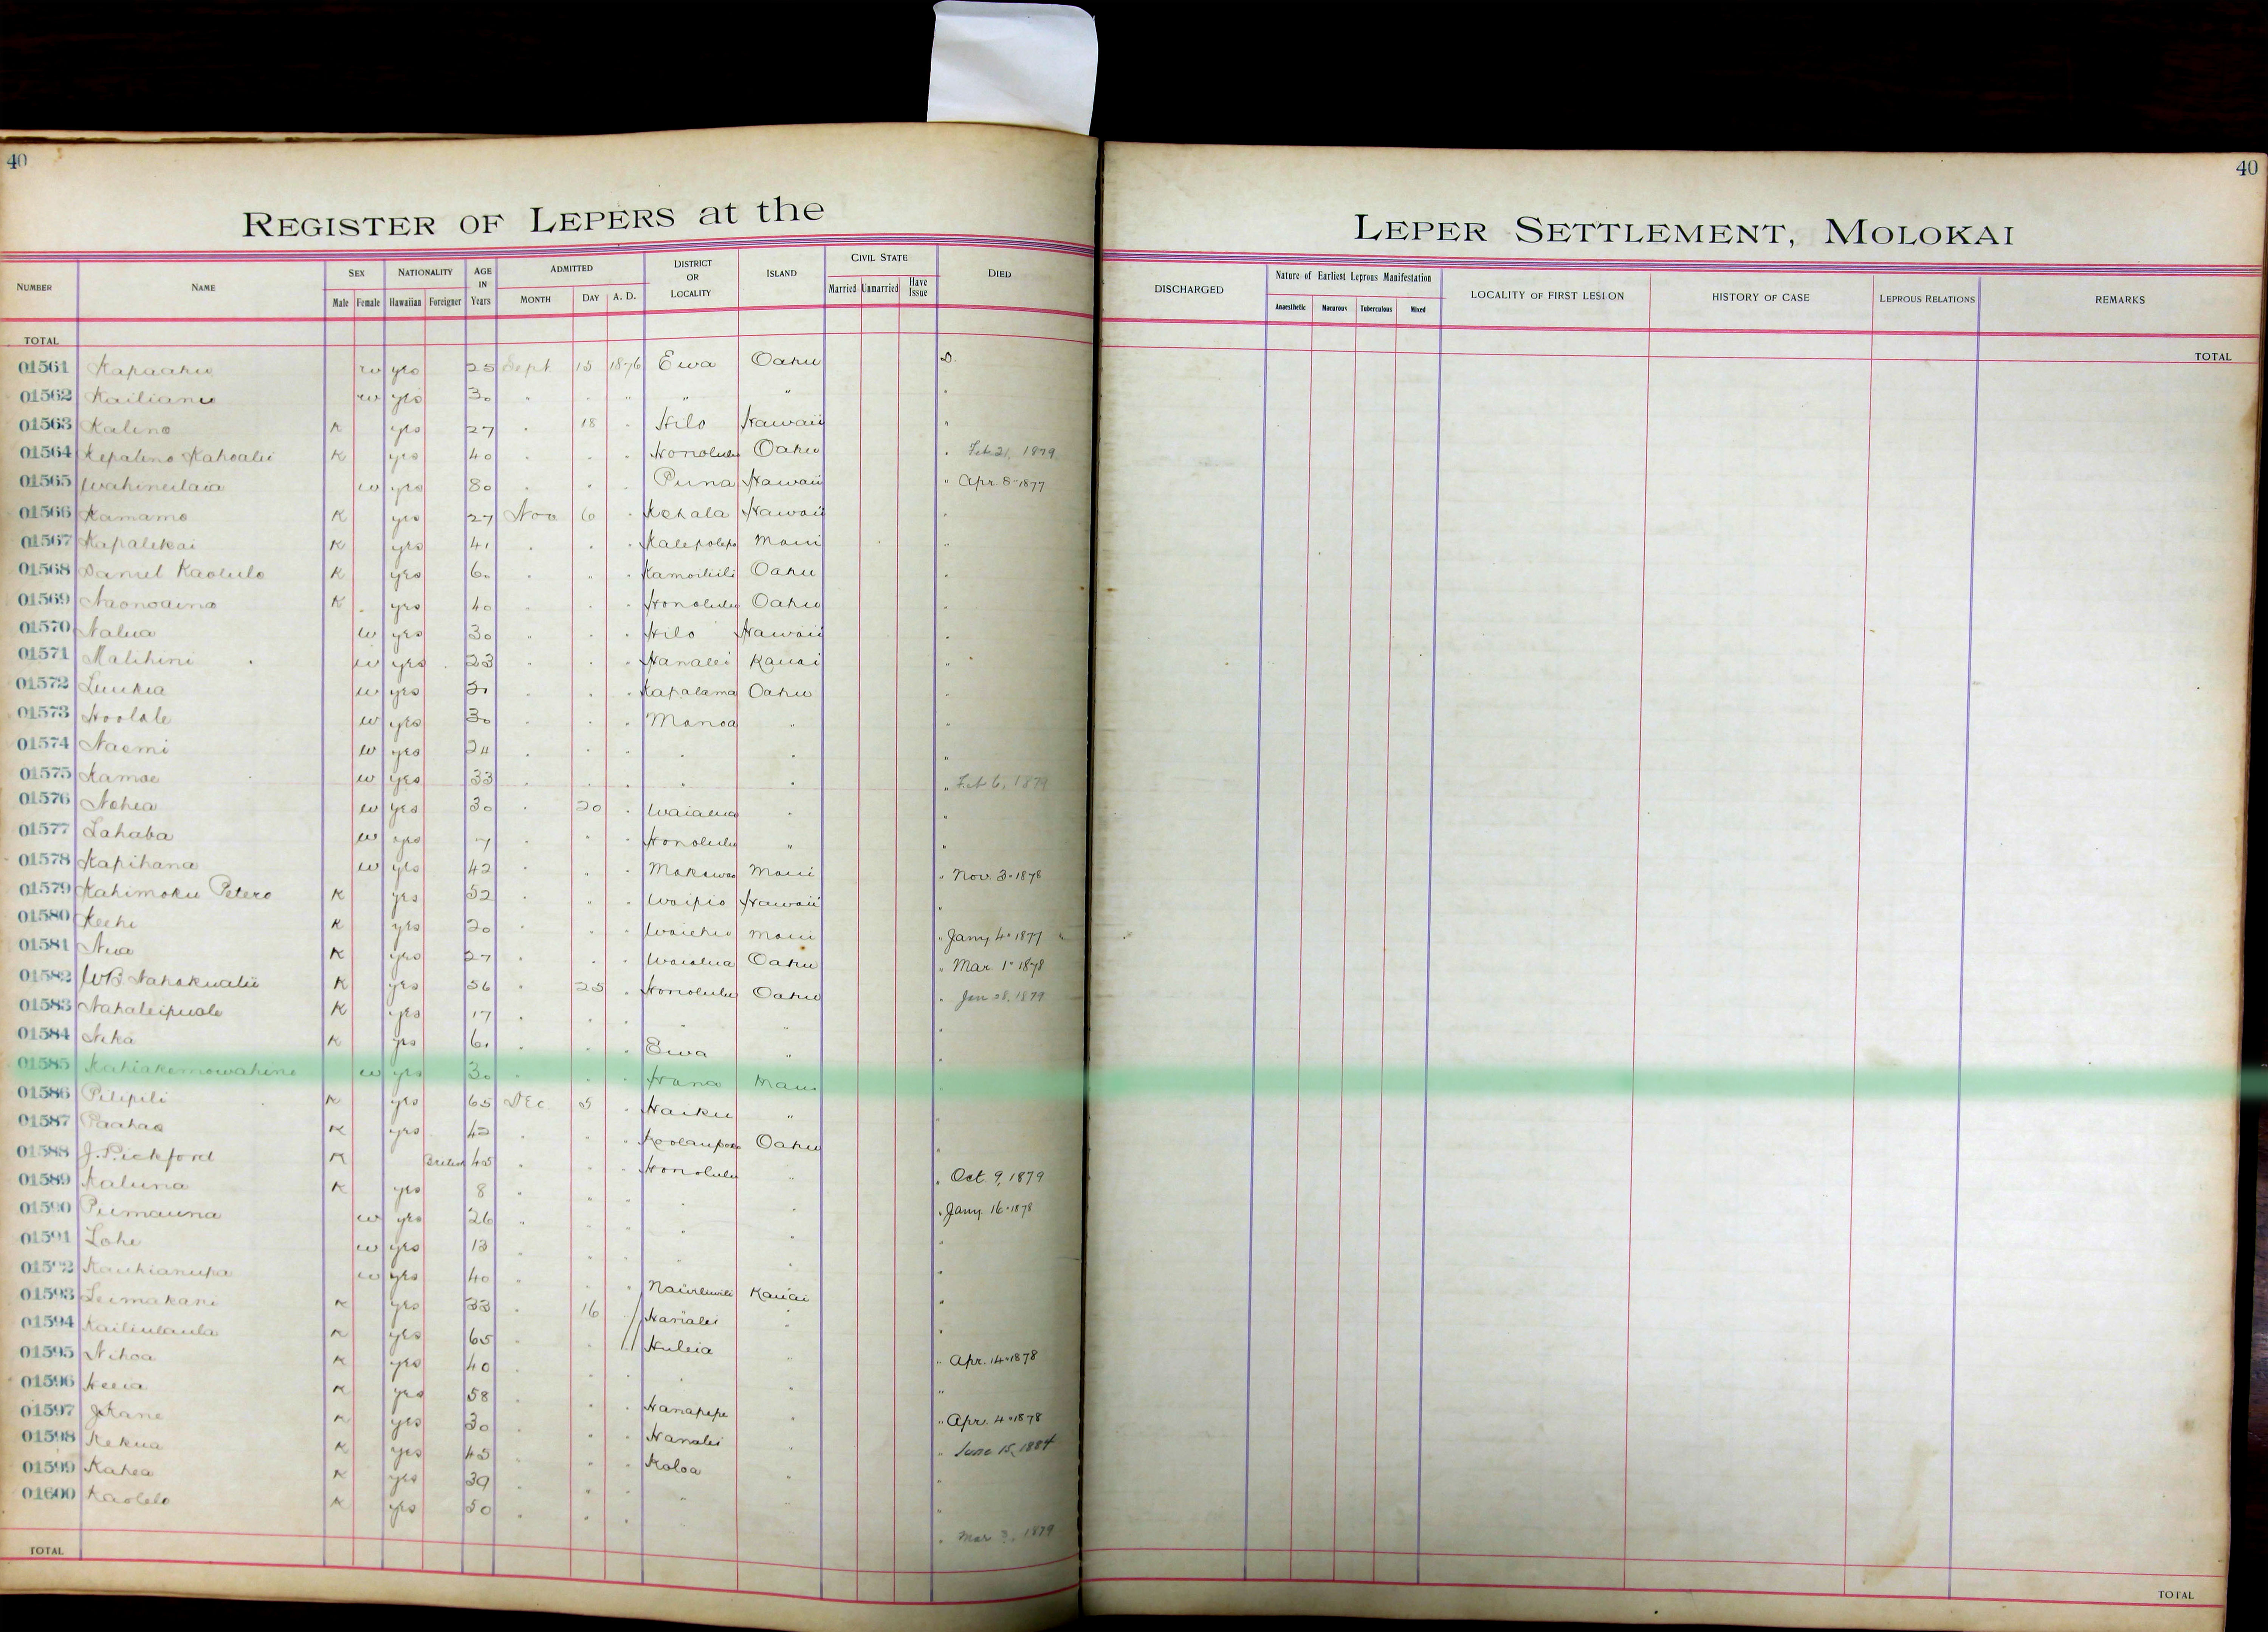 40
40
REGISTER OF LEPERS at the
LEPER SETTLEMENT, MOLOKAI
NUMBER NAME SEX Male Female NATIONALITY Hawaiian Foreigner AGE IN Years ADMITTED MONTH DAY A. D. DISTRICT OR LOCALITY ISLAND CIVIL STATE Married Unmarried Have Issue DIED
DISCHARGED Nature of Earliest Leprous Manifestation Anaesthetic Macurous Tuberculous Mixed LOCALITY OF FIRST LESION HISTORY OF CASE LEPROUS RELATIONS REMARKS
TOTAL
TOTAL
01561 Kapaahu w yes 25 Sept 15 1876 Ewa Oahu D.
01562 Kailianu w yes 30 " " " " " "
01563 Kalino K yes 27 " 18 " Hilo Hawaii "
01564 Kepalino Kahoalii K yes 40 " " " Honolulu Oahu " Feb 21, 1879
01565 Wahineilaia w yes 80 " " " Puna Hawaii " Apr. 8-1877
01566 Kamamo K yes 27 Nov 6 " Kohala Hawaii "
01567 Kapalekai K yes 41 " " " Kalepolepo Maui "
01568 Daniel Kaolulo K yes 60 " " " Kamoiliili Oahu "
01569 Naonoaina K yes 40 " " " Honolulu Oahu "
01570 Nalua w yes 30 " " " Hilo Hawaii "
01571 Malihini w yes 23 " " " Hanalei Kauai "
01572 Luukia w yes " " " Kapalama Oahu "
01573 Hoolale w yes 30 " " " Manoa " "
01574 Naomi w yes 24 " " " " " "
01575 Kamae w yes 33 " " " " " " Feb 6, 1879
01576 Nohea w yes 30 " 20 " Waialua " "
01577 Lahaba w yes 7 " " " Honolulu " "
01578 Kapihana w yes 42 " " " Makawao Maui " Nov. 3-1878
01579 Kahimoku Petero K yes 52 " " " Waipio Hawaii "
01580 Keehi K yes 20 " " " Waiehu Maui " Jany 4-1877 "
01581 Niua K yes 27 " " " Waialua Oahu " Mar. 1-1878
01582 WB Nahokualii K yes 56 " 25 " Honolulu Oahu " Jan 28, 1879
01583 Nahaleipuale K yes 17 " " " " " "
01584 Nika K yes 61 " " " Ewa " "
01585 Kahiakemowahine w yes 30 " " " Hana Maui "
01586 Pilipili K yes 65 Dec 5 " Haiku " "
01587 Paahao K yes 42 " " " Koolaupoko Oahu "
01588 J. Pickford K British 45 " " " Honolulu " " Oct. 9, 1879
01589 Kaluna K yes 8 " " " " " " Jany 16-1878
01590 Puimauna w yes 26 " " " " " "
01591 Lohe w yes 13 " " " " " "
01592 Kauhianupa w yes 40 " " " Nawiliwili Kauai "
01593 Leimakani K yes 33 " 16 " Hanalei " "
01594 Kailiulaula K yes 65 " " " Huleia " " Apr. 14-1878
01595 Nihoa K yes 40 " " " " " "
01596 Heeia K yes 58 " " " Hanapepe " " Apr. 4-1878
01597 J Kane K yes 30 " " " Hanalei " " June 15, 1884
01598 Kekua K yes 45 " " " Koloa " "
01599 Kahea K yes 39 " " " " " "
01600 Kaolelo K yes 50 " " " " Mar 3, 1879
TOTAL
TOTAL